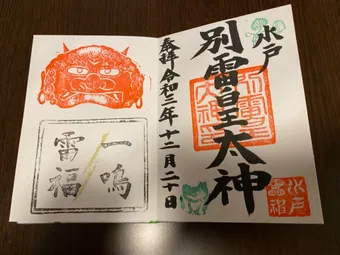 水戸
別雷皇太神
奉拝 令和三年十二月二十日
水戸
一鳴
雷福